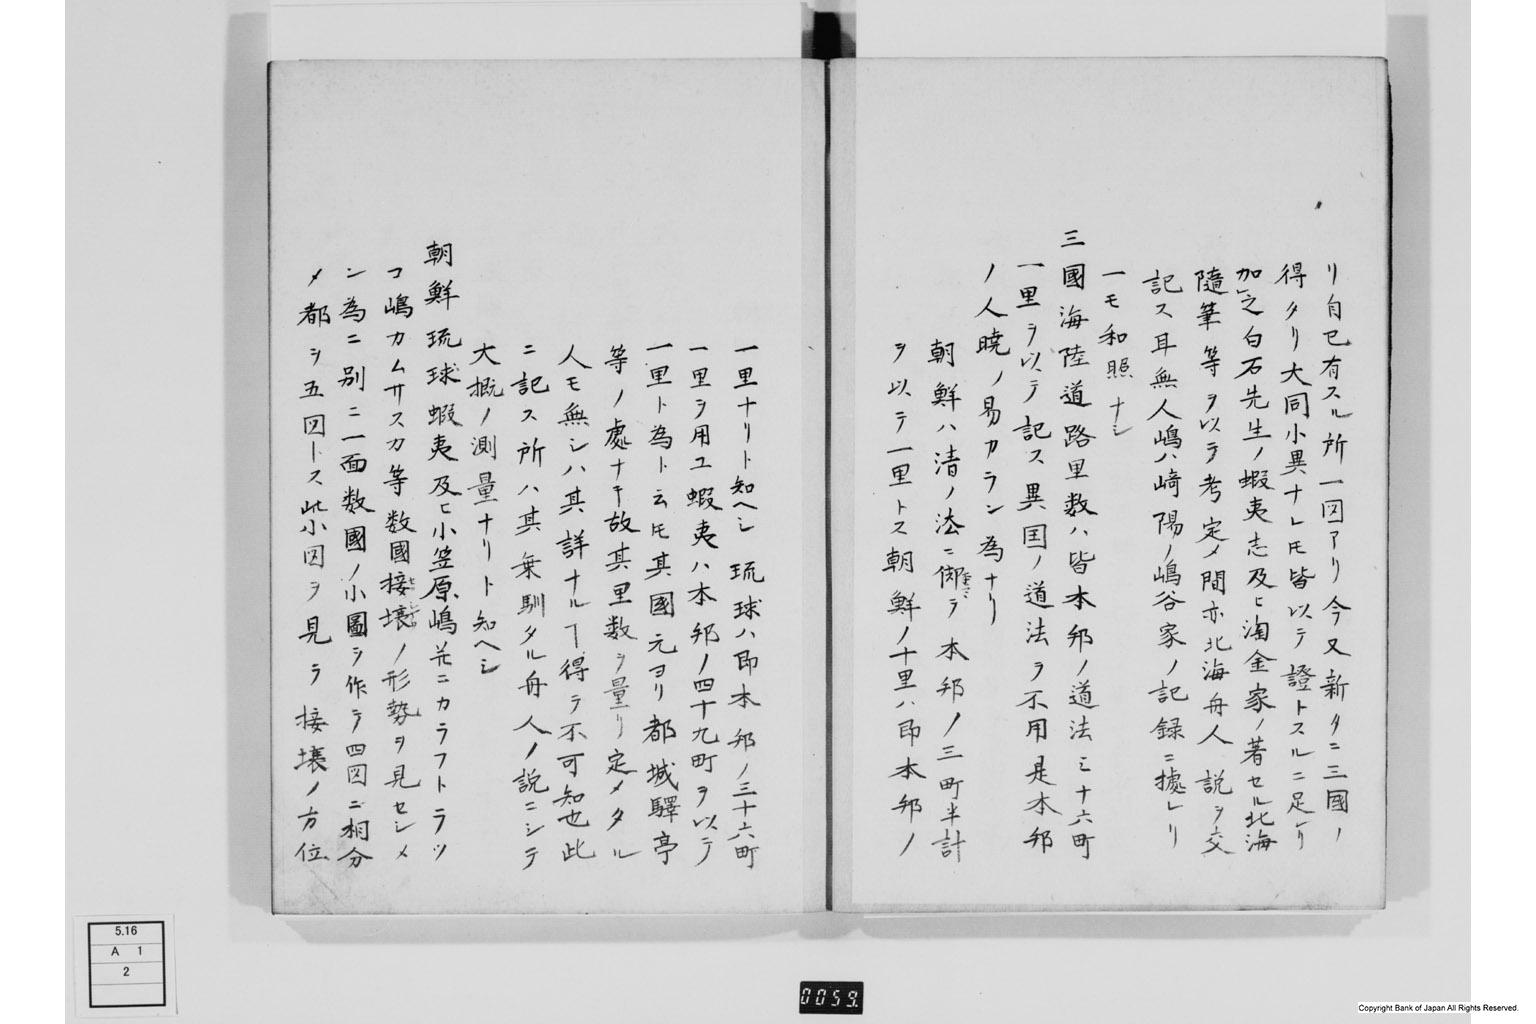 リ自己有スル所一図アリ今又新タニ三國ノ
得タリ大同小異ナレ𪜈皆以テ證トスルニ足レリ
加之白石先生ノ蝦夷志及ヒ淘金家ノ著セル北海
隨筆等ヲ以テ考定メ間亦北海舟人ノ説ヲ交
記ス耳無人嶋ハ崎陽ノ嶋谷家ノ記録ニ據レリ
一モ和照ナシ
三國海陸道路里数ハ皆本邦ノ道法三十六町
一里ヲ以テ記ス異国ノ道法ヲ不用是本邦
ノ人暁ノ易カラン為ナリ
朝鮮ハ清ノ法ニ御ラ本邦ノ三町半計
ヲ以テ一里トス朝鮮ノ十里ハ即本邦ノ
一里ナリト知ヘシ琉球ハ即本邦ノ三十六町
一里ヲ用ユ蝦夷ハ本邦ノ四十九町ヲ以テ
一里ト為ト云𪜈其國元ヨリ都城驛亭
等ノ處ナキ故其里数ヲ量リ定メタル
人モ無シハ其詳ナルヿ得テ不可知也此
ニ記ス所ハ其乗馴タル舟人ノ説ニシテ
大概ノ測量ナリト知ヘシ
朝鮮琉球蝦夷及ヒ小笠原嶋并ニカラフトラツ
コ嶋カムサスカ等数國接壌ノ形勢ヲ見セシメ
ン為ニ別ニ一面数國ノ小圖ヲ作テ四図ニ相分
メ都シ五図トス此小図ヲ見ラ接壌ノ方位
5.16
A 1
2
0059.
Copyright Bank of Japan All Rights Reserved.